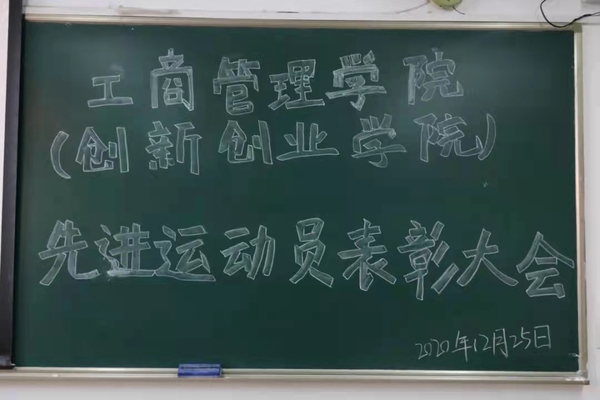 工商管理学院
(创新创业学院)
先进运动员表彰大会
2020年12月25日